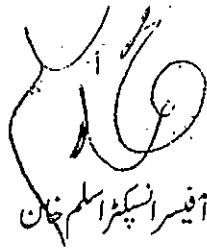 آفیسر انسپکٹر اسلم خان